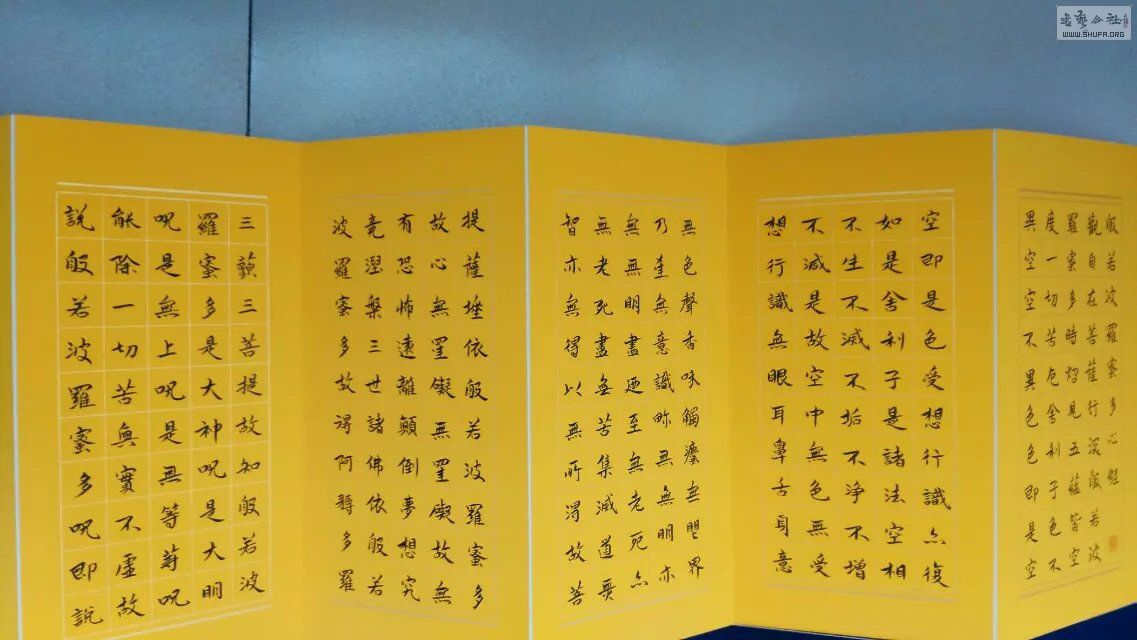 書藝公社
WWW.SHUFA.ORG
般若波羅蜜多心經
觀自在菩薩行深般若波
羅蜜多時照見五蘊皆空
度一切苦厄舍利子色不
異空空不異色色即是空
空即是色受想行識亦復
如是舍利子是諸法空相
不生不滅不垢不淨不增
不減是故空中無色無受
想行識無眼耳鼻舌身意
無色聲香味觸法無眼界
乃至無意識界無無明亦
無無明盡乃至無老死亦
無老死盡無苦集滅道無
智亦無得以無所得故菩
提薩埵依般若波羅蜜多
故心無罣礙無罣礙故無
有恐怖遠離顛倒夢想究
竟涅槃三世諸佛依般若
波羅蜜多故得阿耨多羅
三藐三菩提故知般若波
羅蜜多是大神呪是大明
呪是無上呪是無等等呪
能除一切苦真實不虛故
說般若波羅蜜多呪即說